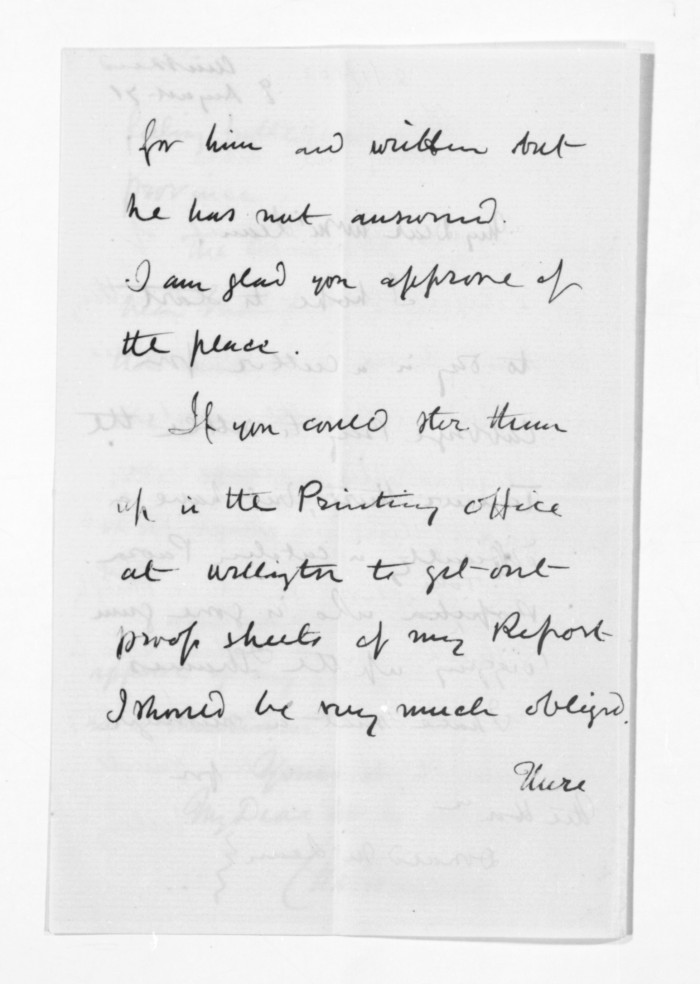 for him and written but
he has not answered.
I am glad you approve of
the place.
If you could stir them
up in the Printing office
at Wellington to get out
proof sheets of my Report
I should be very much obliged.
There